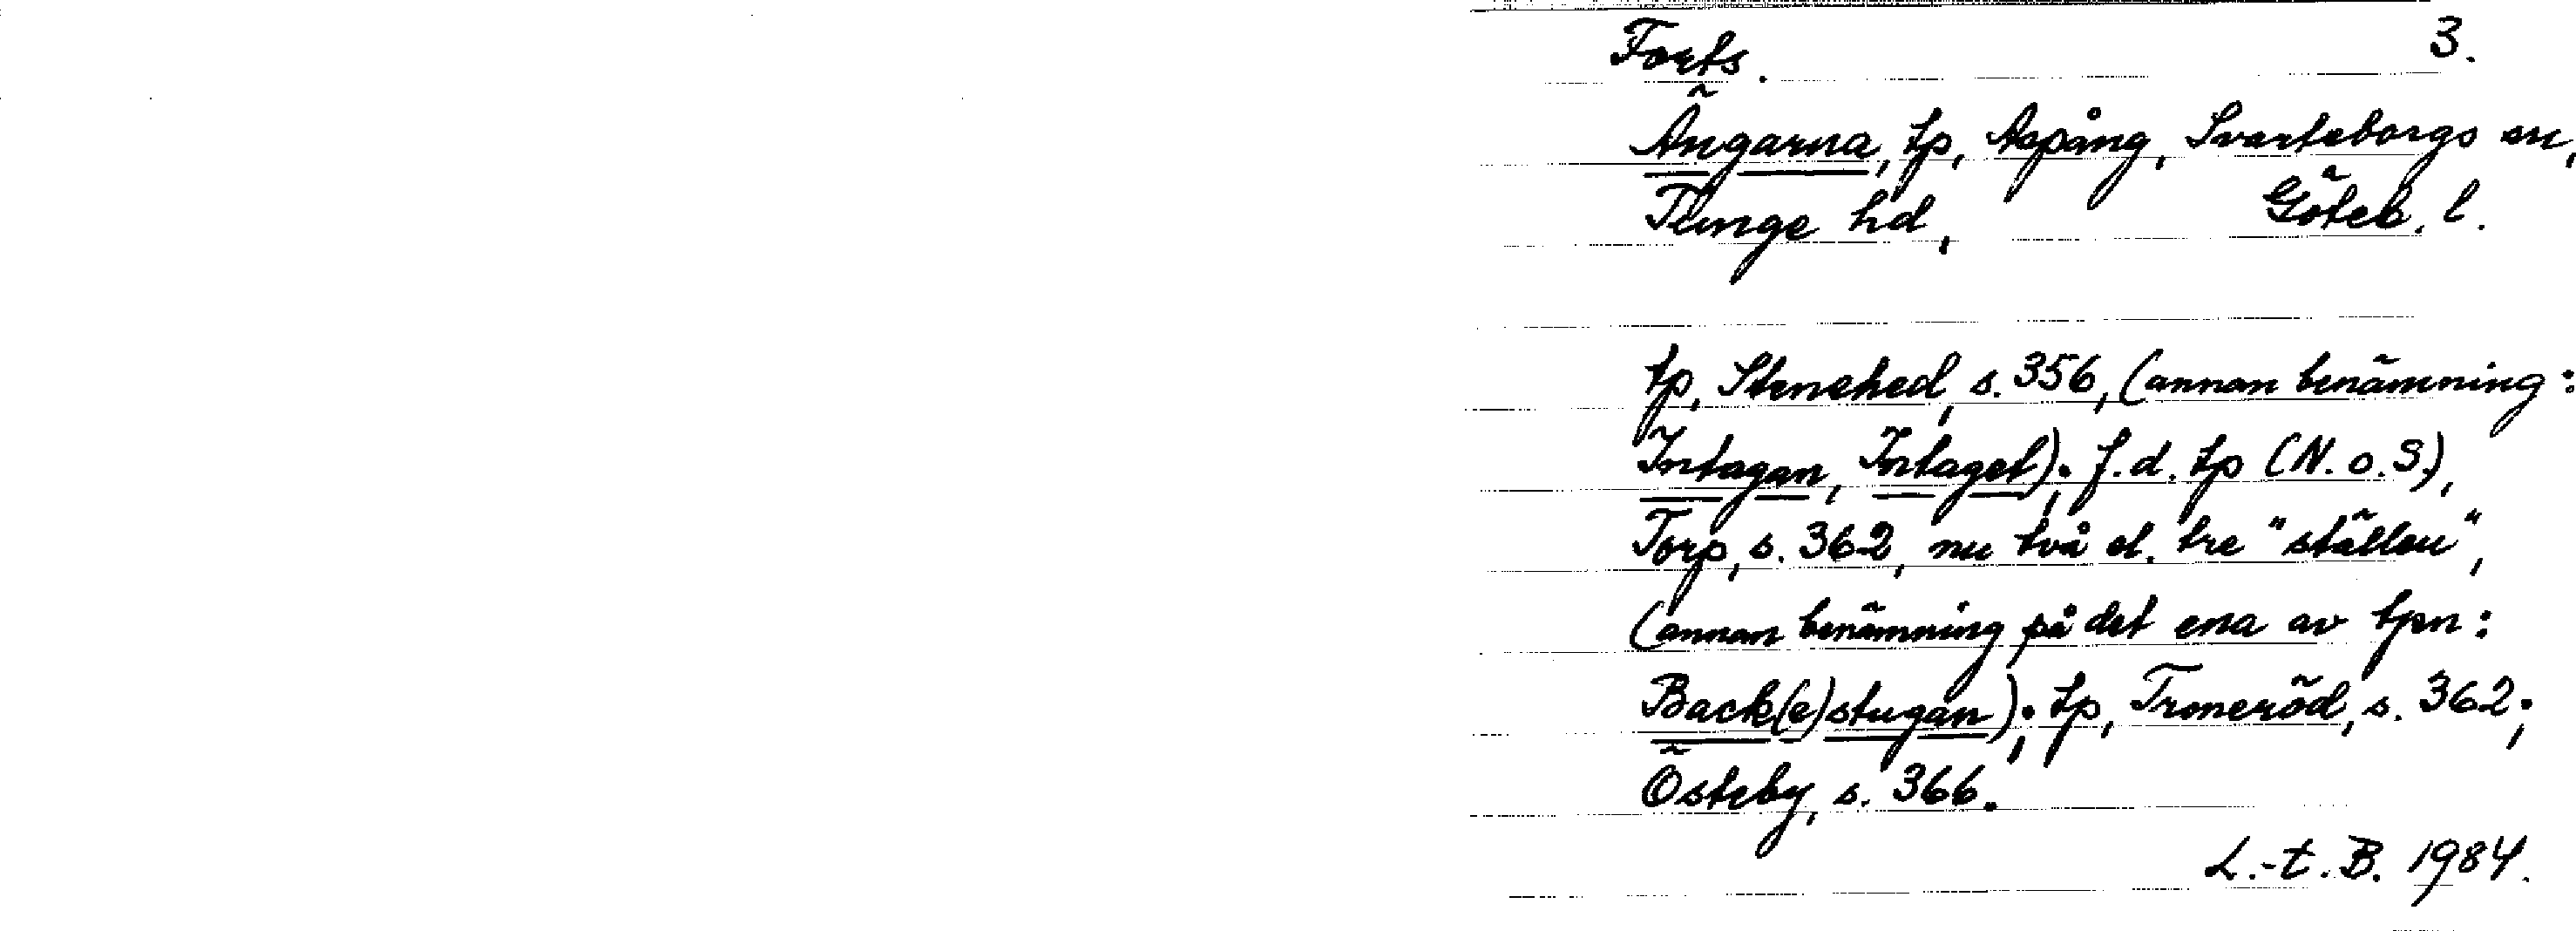 Forts. 3.
Ängarna, tp, Aspång, Svarteborgs sn,
Tunge hd, Göteb. l.
tp, Stenehed, s. 356, (annan benämning:
Intagan, Intaget); f.d. tp (N. o. S.),
Torp, s. 362, nu två el. tre "ställen",
(annan benämning på det ena av tpn:
Back(e)stugan); tp, Troneröd, s. 362;
Östeby, s. 366.
L.-t. B. 1984.